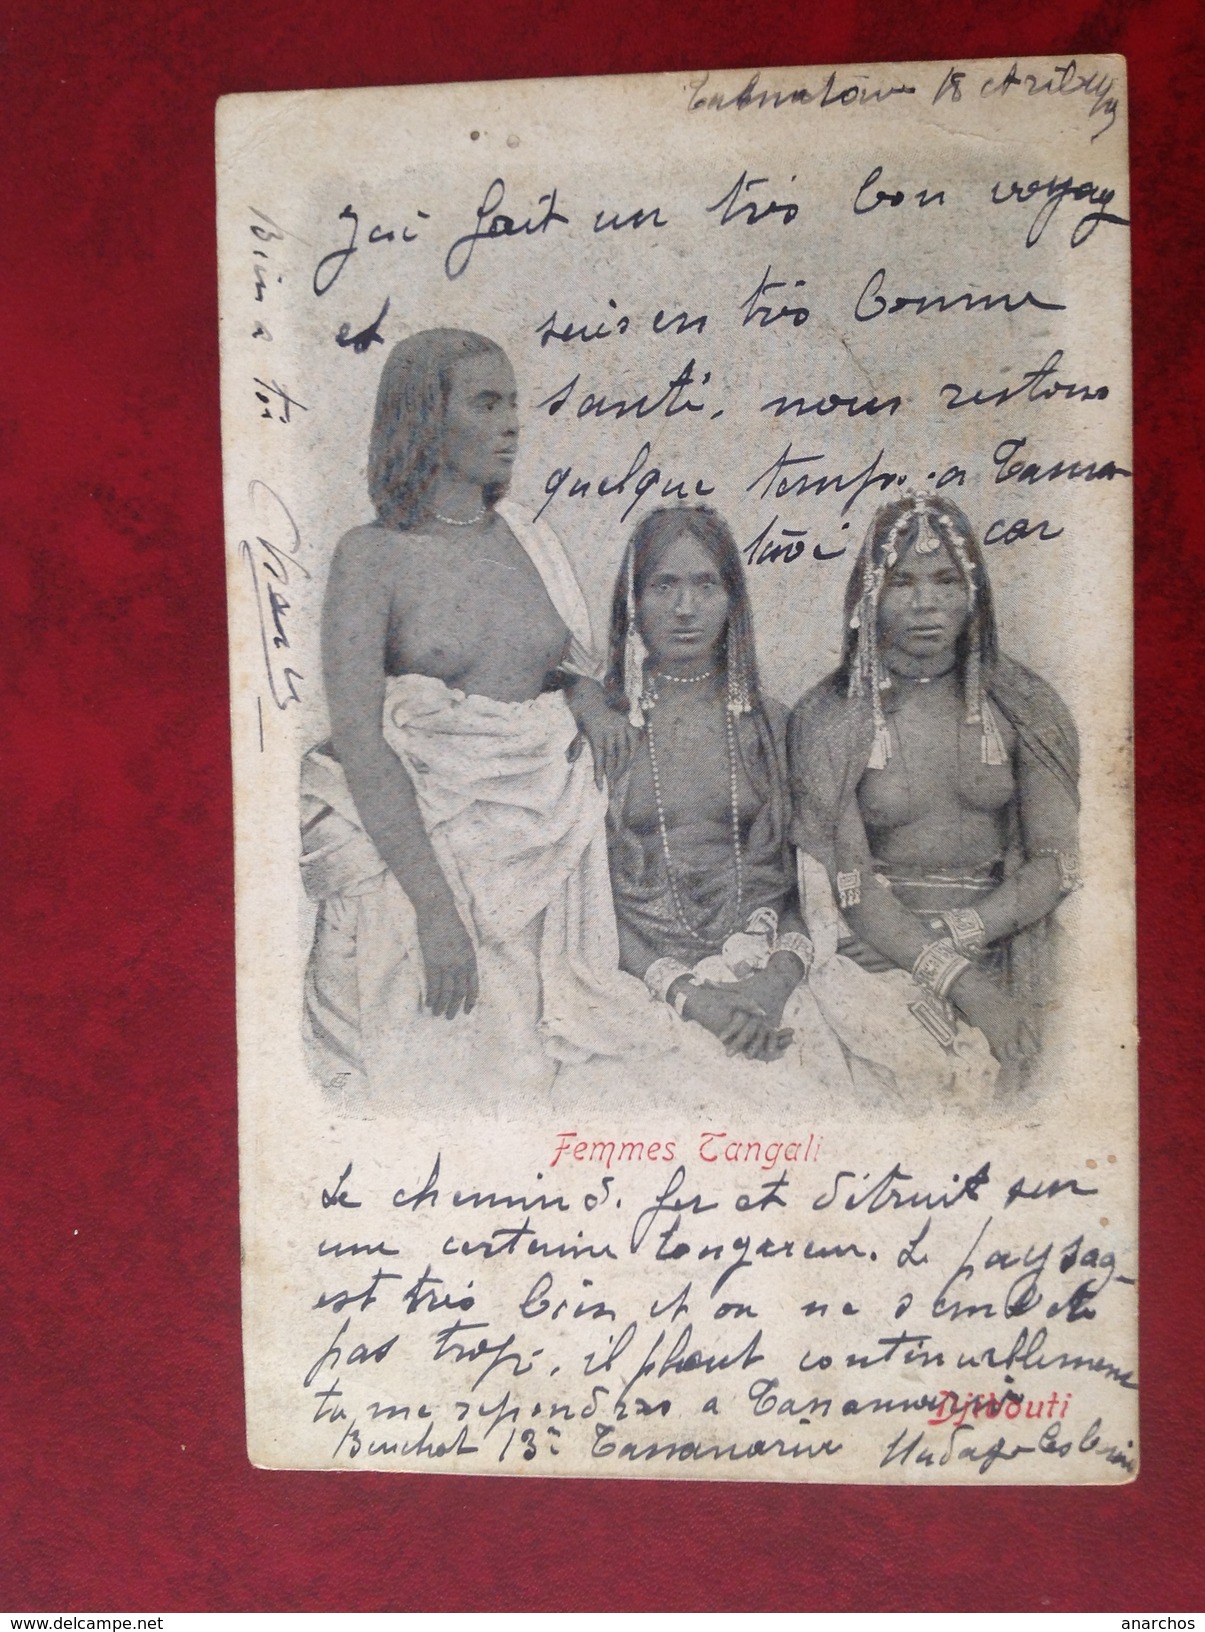 18 Avril
J'ai fait un très bon voyag
et suis en très bonne
santé, nous restons
quelque temps a Tama
tave car
Bien a toi
Femmes Tangali
Le chemin d. fer et détruit sur
une certaine longueur. Le paysag
est très bien et on ne s'emb
pas trop, il pleut continuellement
tu me repondras a Tananarive
Djibouti
13e Tananarive
www.delcampe.net
anarchos